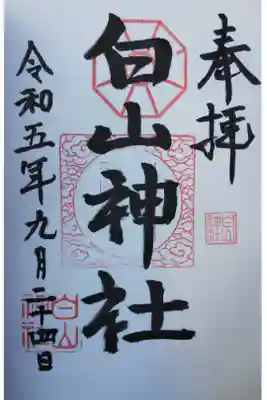 奉拝
白山神社
令和五年九月二十四日
白山
神社